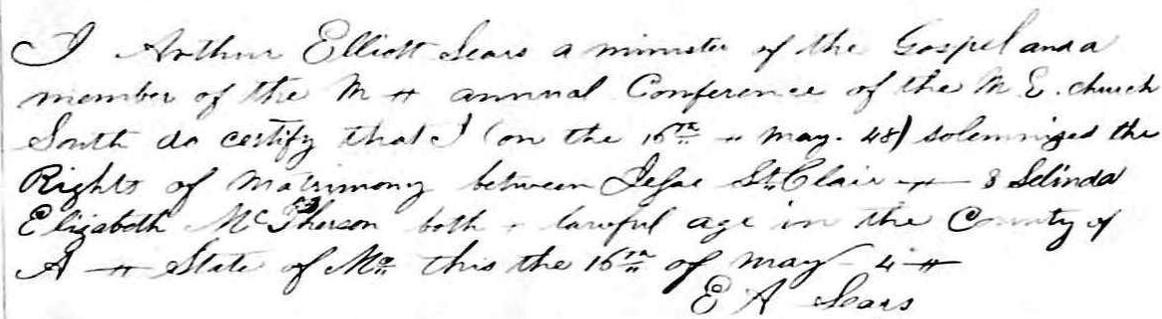 I Arthur Elliott Sears a minister of the Gospel and a
member of the M annual Conference of the M E. church
South do certify that I (on the 16th May. 48) solemnized the
Rights of Matrimony between Jesse St. Clair & Selinda
Elizabeth McPherson both lawful age in the County of
A State of Mo this the 16th of May 4
E A Sears